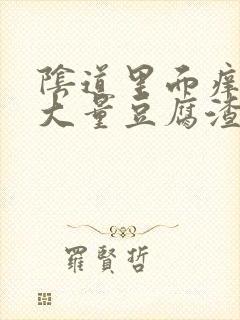 陰道里而癢
大量豆腐渣
羅賢哲